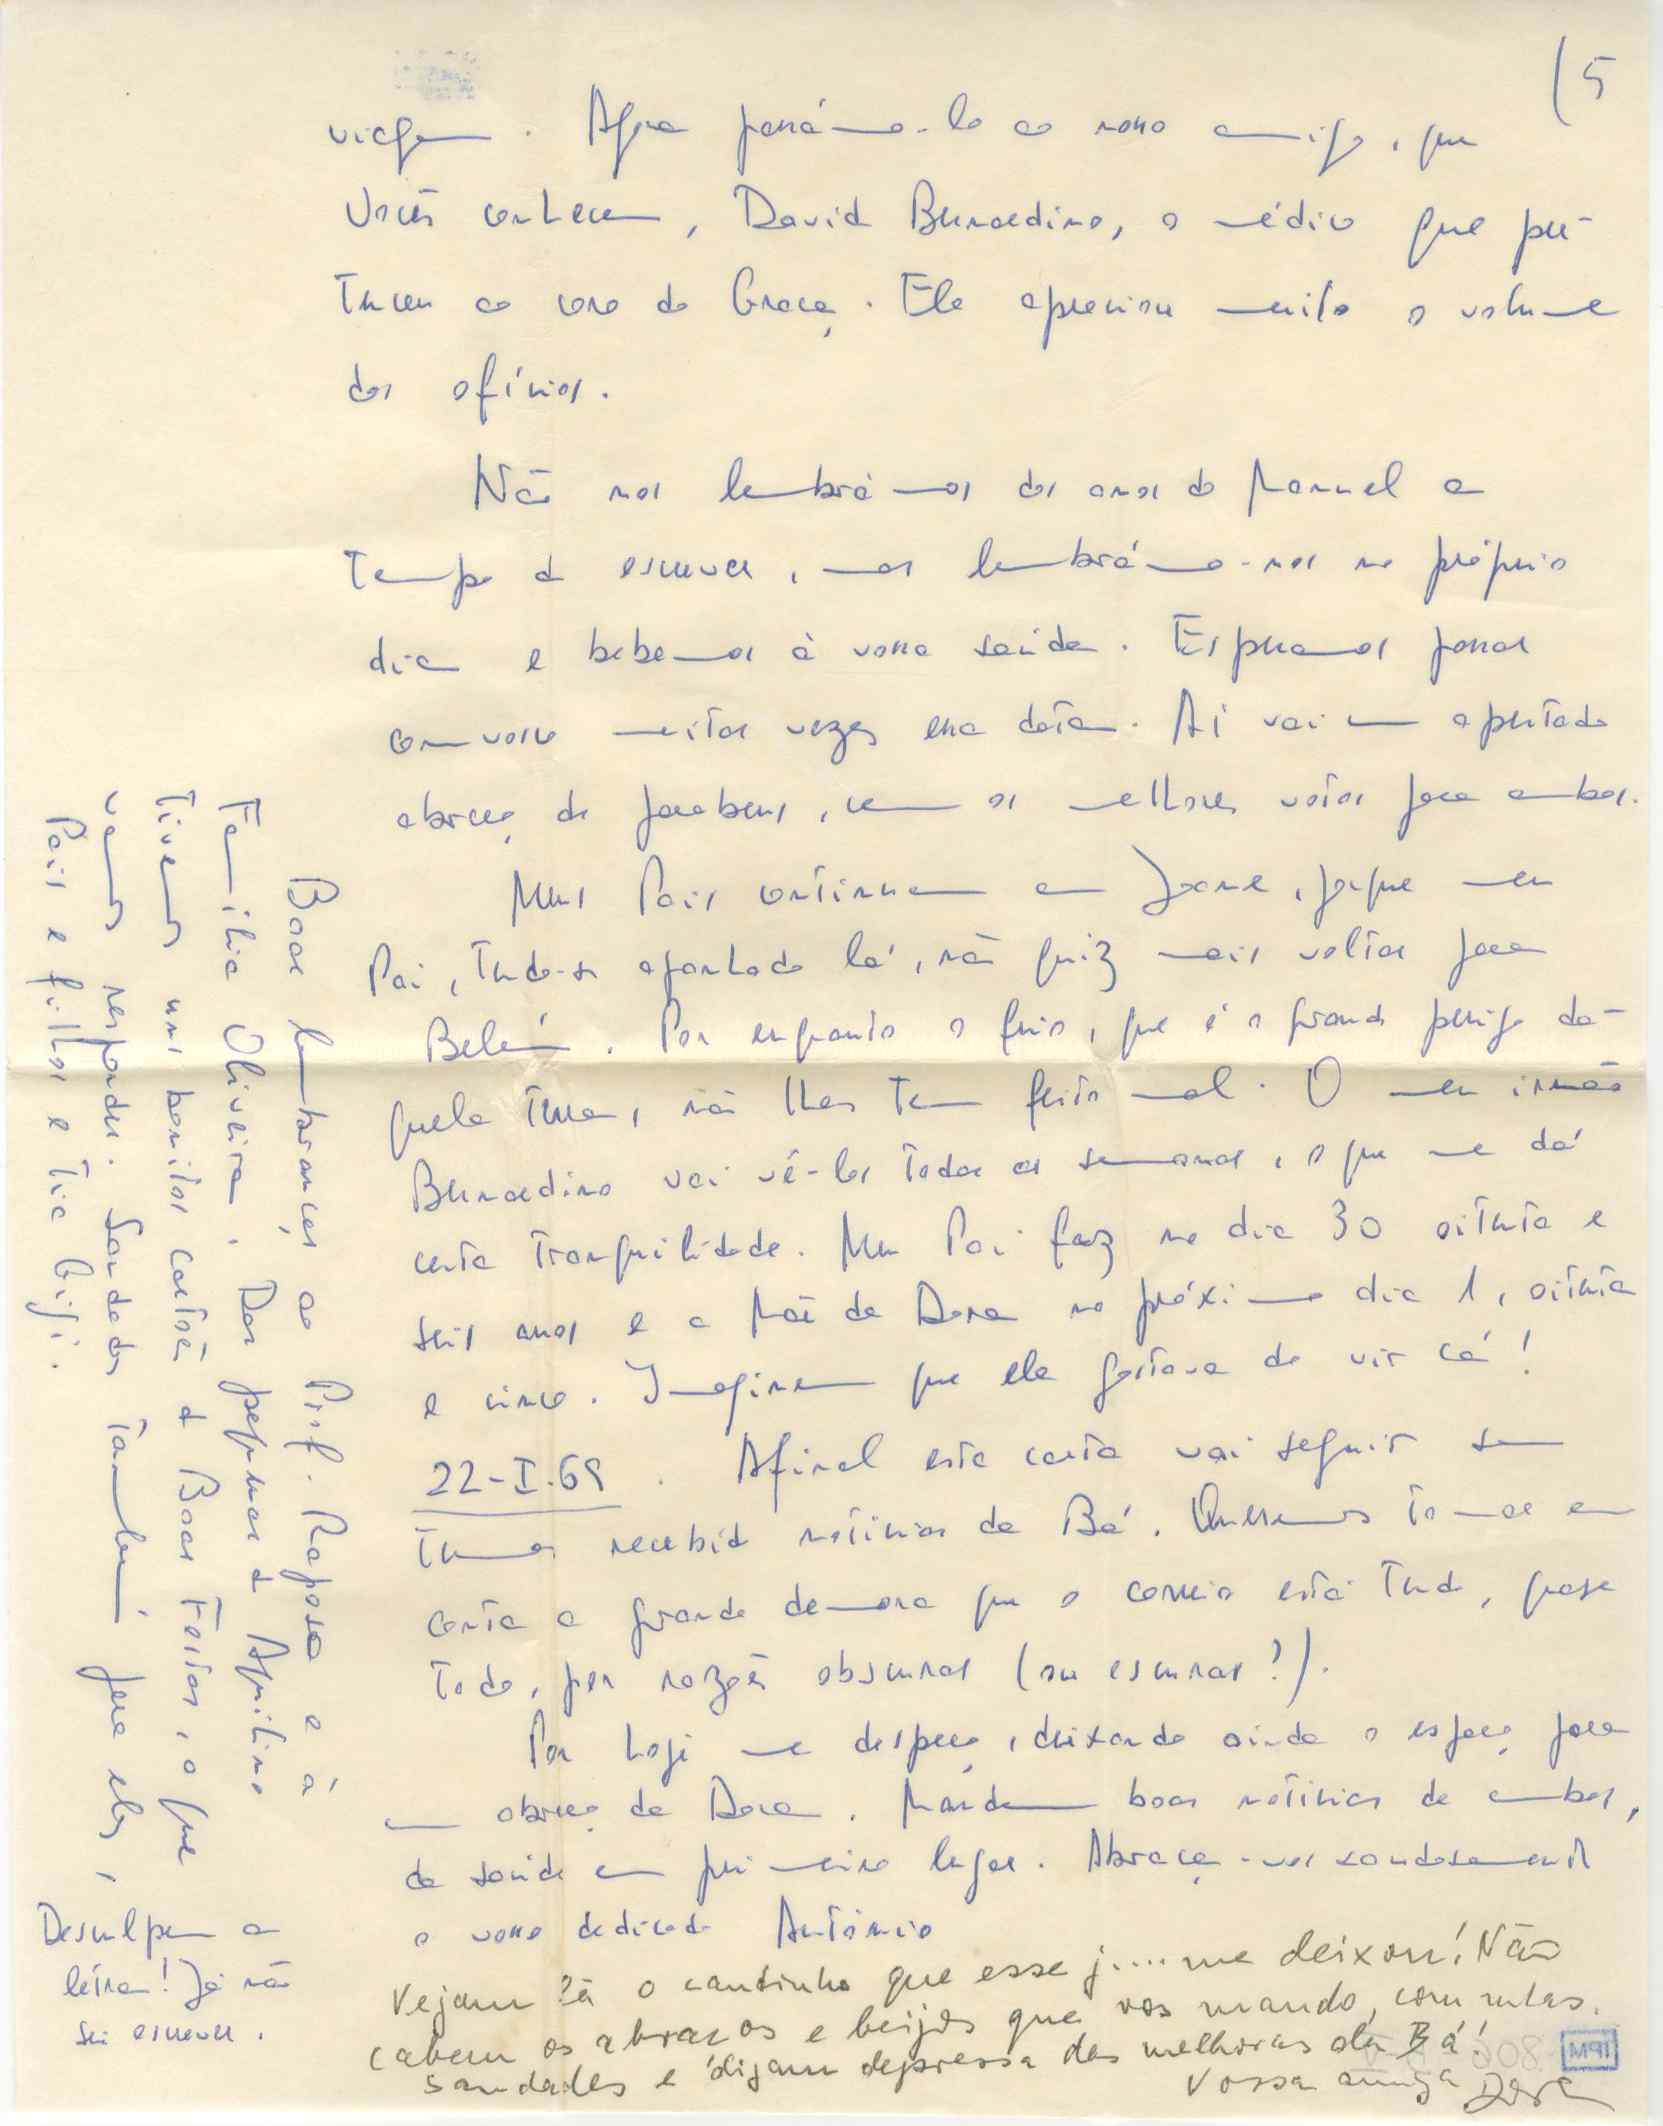 (5
viagem. Agora passámo-lo ao nosso amigo, que
Vocês conhecem, David Bernardino, o médico que per-
tenceu ao coro do Graça. Ele apreciou muito o volume
dos ofícios.
Não nos lembrámos dos anos do Manuel a
tempo de escrever, mas lembrámo-nos no próprio
dia e bebemos à vossa saúde. Esperamos passar
convosco muitas vezes essa data. Aí vai um apertado
abraço de parabens, com os melhores votos para ambos.
Meus Pais continuam em Joane, porque meu
Pai, tendo-se apanhado lá, não quiz mais voltar para
Belém. Por enquanto o frio, que é o grande perigo da-
quela terra, não lhes tem feito mal. O meu irmão
Bernardino vai vê-los todas as semanas, o que me dá
certa tranquilidade. Meu Pai faz no dia 30 oitenta e
seis anos e a Mãe da Dora no próximo dia 1, oitenta
e cinco. Imaginem que ela gostava de vir cá!
22-I-69. Afinal esta carta vai seguir sem
termos recebido notícias da Bá. Queremos tomar em
conta a grande demora que o correio está tendo, quase
todo, por razões obscuras (ou escuras?).
Por hoje me despeço, deixando ainda o espaço para
um abraço da Dora. Mandem boas notícias de ambos,
da saúde em primeiro lugar. Abraça-vos saudosamente
o vosso dedicado António
Vejam lá o cantinho que esse j.... me deixou! Não
cabem os abraços e beijos que vos mando, com mtas.
saudades e digam depressa das melhoras da Bá!
Vossa amiga Dora
Boas lembranças ao Prof. Raposo e à
Família Oliveira. Dos pequenos de Aquilino
tivemos uns bonitos cartões de Boas Festas, o que
vamos responder. Saudades também para eles,
Pais e filhos e Tia Gigi.
Desculpem a
letra! Já não
sei escrever.
MPI